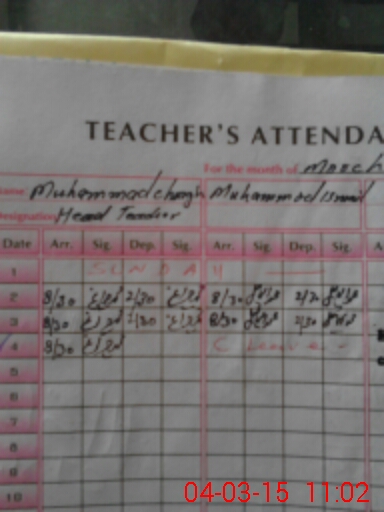 TEACHER'S ATTENDA
For the month of March
ame Muhammad Muhammad
esignation Head Teacher
Date Arr. Sig. Dep. Sig. Arr. Sig. Dep. Sig. A
1 S U N D A Y
2 8/30 2/30 8/30 2/30
3 8/30 2/30 8/30 2/30
4 8/30 C Leave
5
6
7
8
9
10
04-03-15 11:02